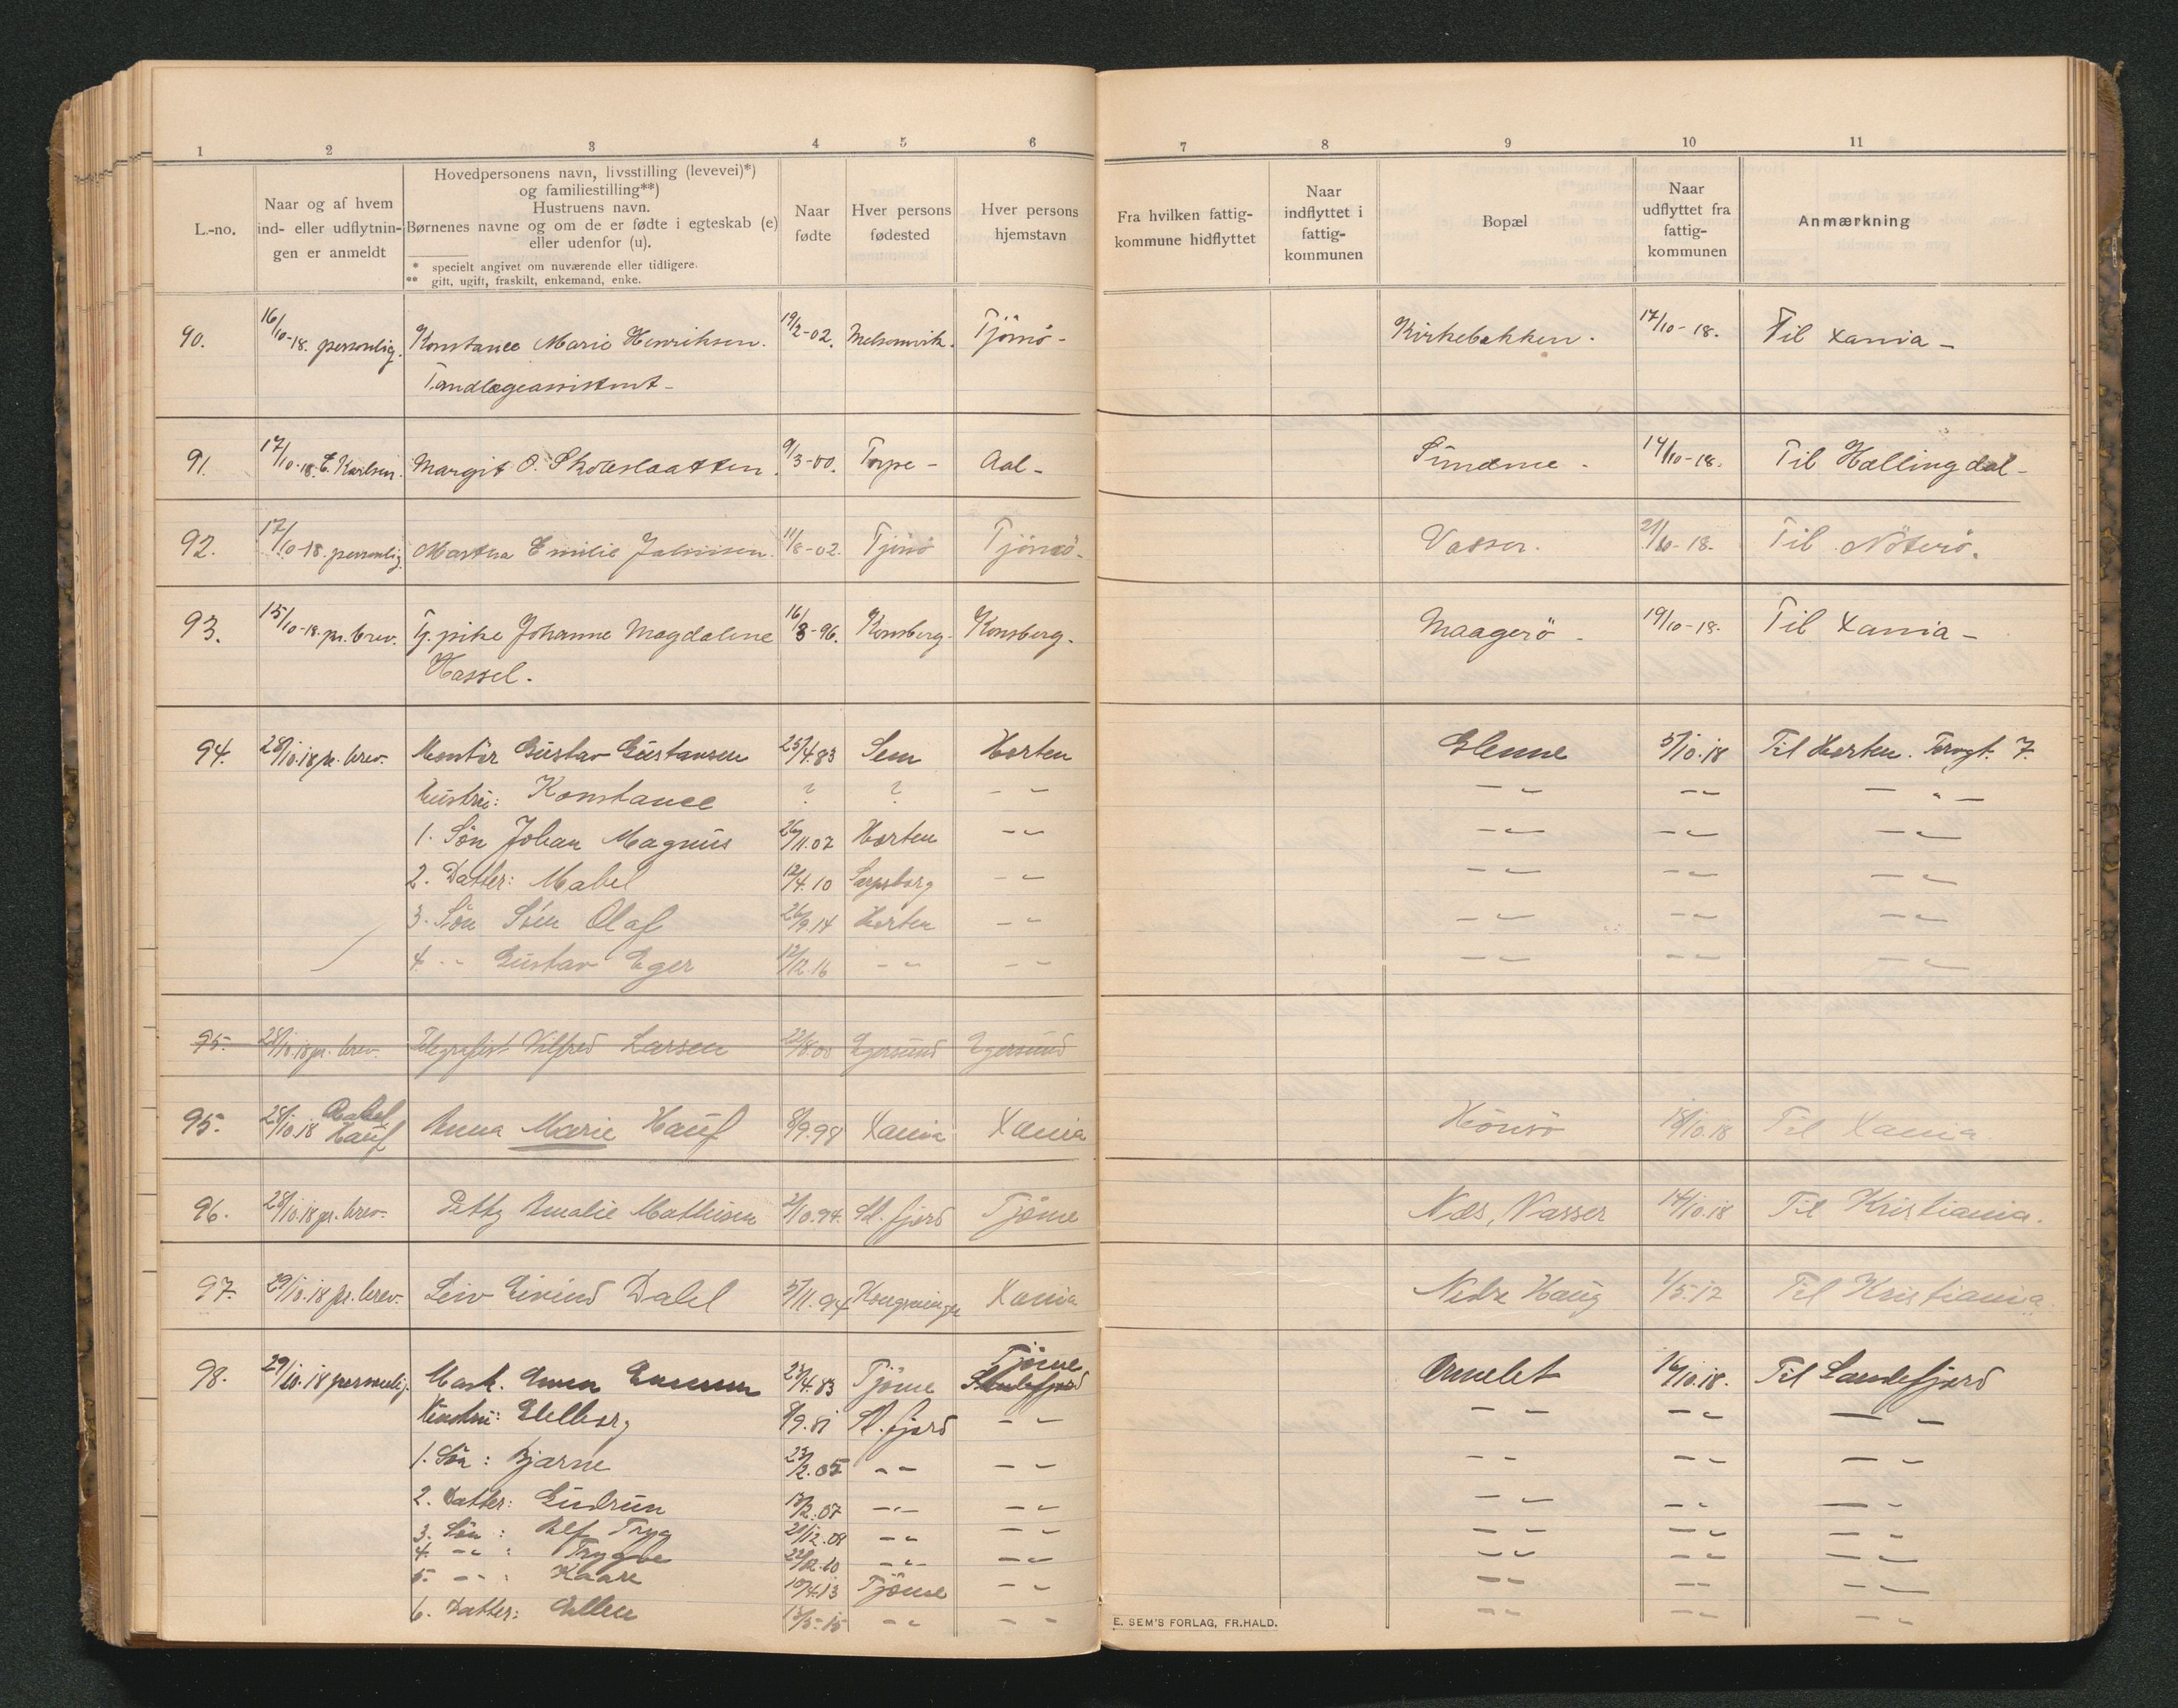 1 2 3 4 5 6 7 8 9 10 11
L.-no.
Naar og af hvem
ind- eller udflytnin-
gen er anmeldt
Hovedpersonens navn, livsstilling (levevei)*)
og familiestilling**)
Hustruens navn.
Børnenes navne og om de er fødte i egteskab (e)
eller udenfor (u).
* specielt angivet om nuværende eller tidligere.
** gift, ugift, fraskilt, enkemand, enke.
Naar
fødte
Hver persons
fødested
Hver persons
hjemstavn
Fra hvilken fattig-
kommune hidflyttet
Naar
indflyttet i
fattig-
kommunen
Bopæl
Naar
udflyttet fra
fattig-
kommunen
Anmærkning
90. 16/10-18. personlig. Konstance Marie Henriksen. 19/2-02. Melsomvik. Tjömö- Kirkebakken. 17/10-18. Til Xania-
Tandlægeassistent-
91. 17/10-18. E. Karlsen. Margit O. 9/3-00. Torpe- Aal- Sundene. 14/10-18. Til Hallingdal-
92. 17/10-18. personlig. Martha Emilie 11/8-02. Tjömö Tjömö- Vasser. 21/10-18. Til Nöterö.
93. 15/10-18. pr. brev. Tj.pike Johanne Magdalene 16/3-96. Konsberg- Konsberg- Maagerö- 19/10-18. Til Xania-
Hassel.
94. 28/10.18 pr. brev. Montör Gustav Gustavsen 25/4.83 Sem Horten Glenne 5/10.18 Til Horten. Torvgt. 7.
Hustru: Konstance ? ? -"- -"- -"- -"-
1. Sön Johan Magnus 26/11.07 Horten -"- -"- -"- -"-
2. Datter: Mabel 12/4.10 Sarpsborg -"- -"- -"- -"-
3. Sön Olaf 26/9.14 Horten -"- -"- -"- -"-
4. -"- Gustav Eger 12/12.16 -"- -"- -"- -"- -"-
95. 28/10.18 pr. brev. Telegrafist Vilfred Larsen 22/8.00 Egersund Egersund
95. 28/10.18 Rakel Hauf Anna Marie Hauf 8/9.98 Xania Xania Hönsö 18/10.18 Til Xania.
96. 28/10.18 pr. brev. Petty Amalie Mathisen 2/10.94. Sd.fjord Tjöme Næs, Vasser 14/10.18 Til Kristiania.
97. 29/10.18 pr. brev. Leiv Eivind Dahl 5/11.94 Kongsvinger Xania Nedre Haug 1/5.12 Til Kristiania
98. 29/10.18 personlig. Mask. 23/4.83 Tjöme Tjöme Sandefjord Ormelet 16/10.18. Til Sandefjord
Hustru: 8/9.81 Sd.fjord -"- -"- -"- -"-
1. Sön: Bjarne 23/2.05 -"- -"- -"- -"- -"-
2. Datter: Gudrun 18/2.07 -"- -"- -"- -"- -"-
3. Sön: Alf Tryg 21/12.08 -"- -"- -"- -"- -"-
4. -"-: Trygve 22/12.10 -"- -"- -"- -"- -"-
5. -"-: Kaare 10/4.13 Tjöme -"- -"- -"- -"-
6. Datter: Ellen 13/5.15 -"- -"- -"- -"- -"-
E. SEM'S FORLAG, FR.HALD.